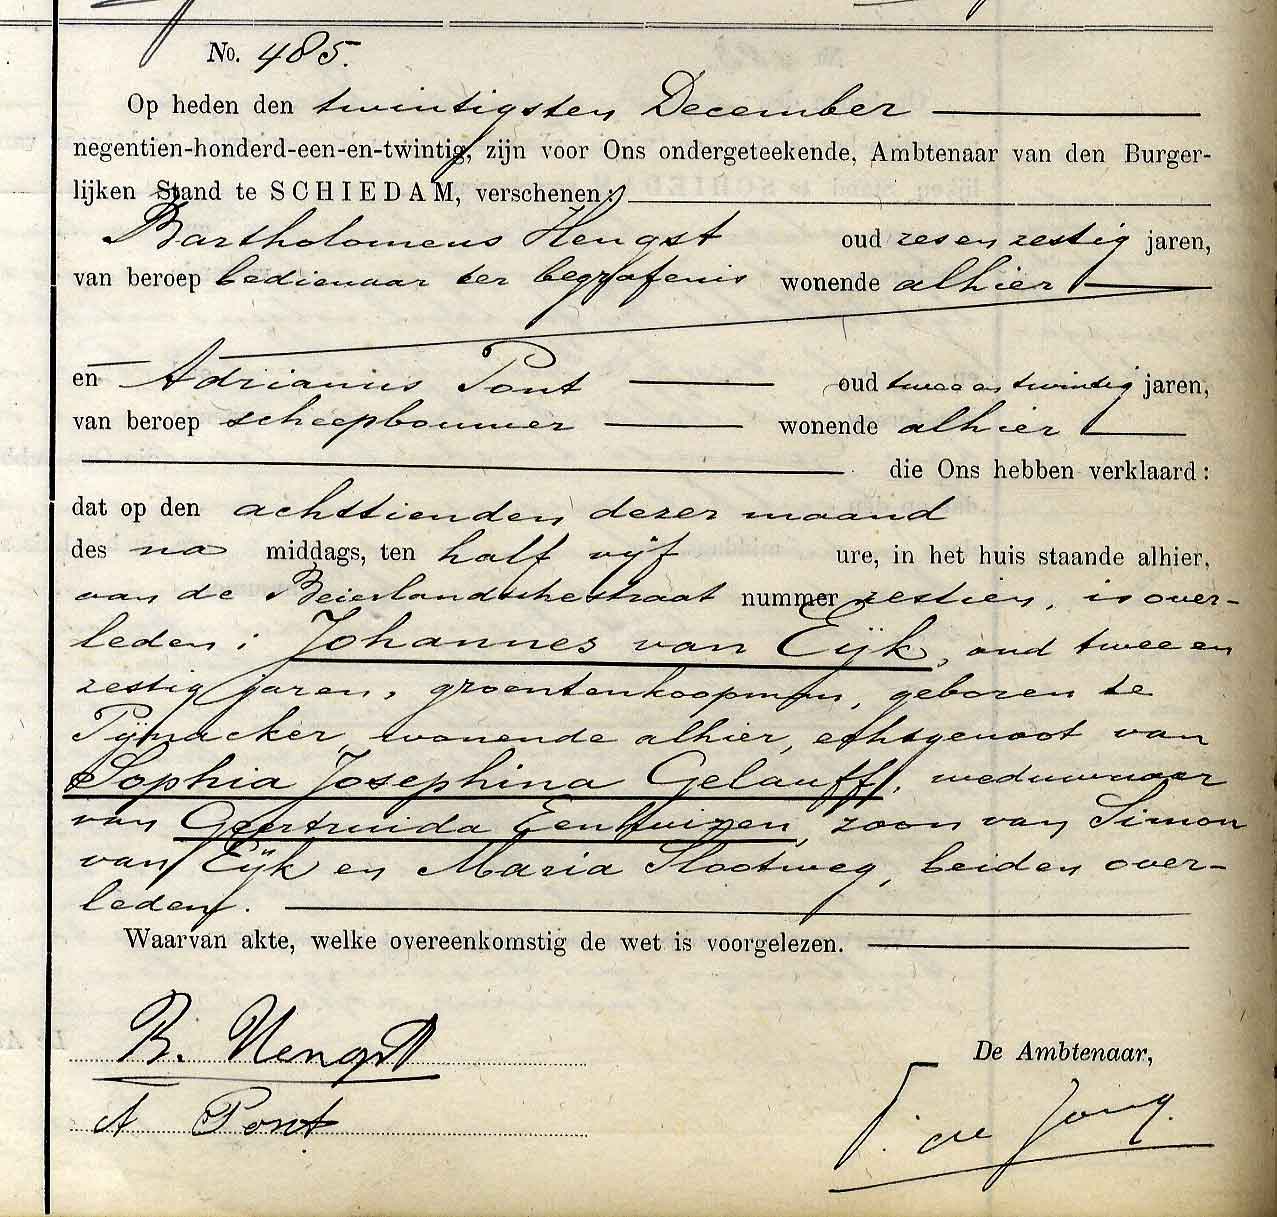 No. 485.
Op heden den twintigsten December
negentien-honderd-een-en-twintig, zijn voor Ons ondergeteekende, Ambtenaar van den Burger-
lijken Stand te SCHIEDAM, verschenen:
Bartholomeus Hengst oud zesenzestig jaren,
van beroep bedienaar ter begrafenis wonende alhier
en Adrianus Pont oud twee en twintig jaren,
van beroep scheepbouwer wonende alhier
die Ons hebben verklaard:
dat op den achttienden dezer maand
des na middags, ten half vijf ure, in het huis staande alhier,
aan de Beierlandschestraat nummer zestien, is over-
leden: Johannes van Eijk, oud twee en
zestig jaren, groentenkoopman, geboren te
Pijnacker, wonende alhier, echtgenoot van
Sophia Josephina Gelauff, weduwnaar
van Geertruida Eenhuizen, zoon van Simon
van Eijk en Maria Slootweg, beiden over-
leden.
Waarvan akte, welke overeenkomstig de wet is voorgelezen.
B. Hengst
De Ambtenaar,
A Pont
de Jong.